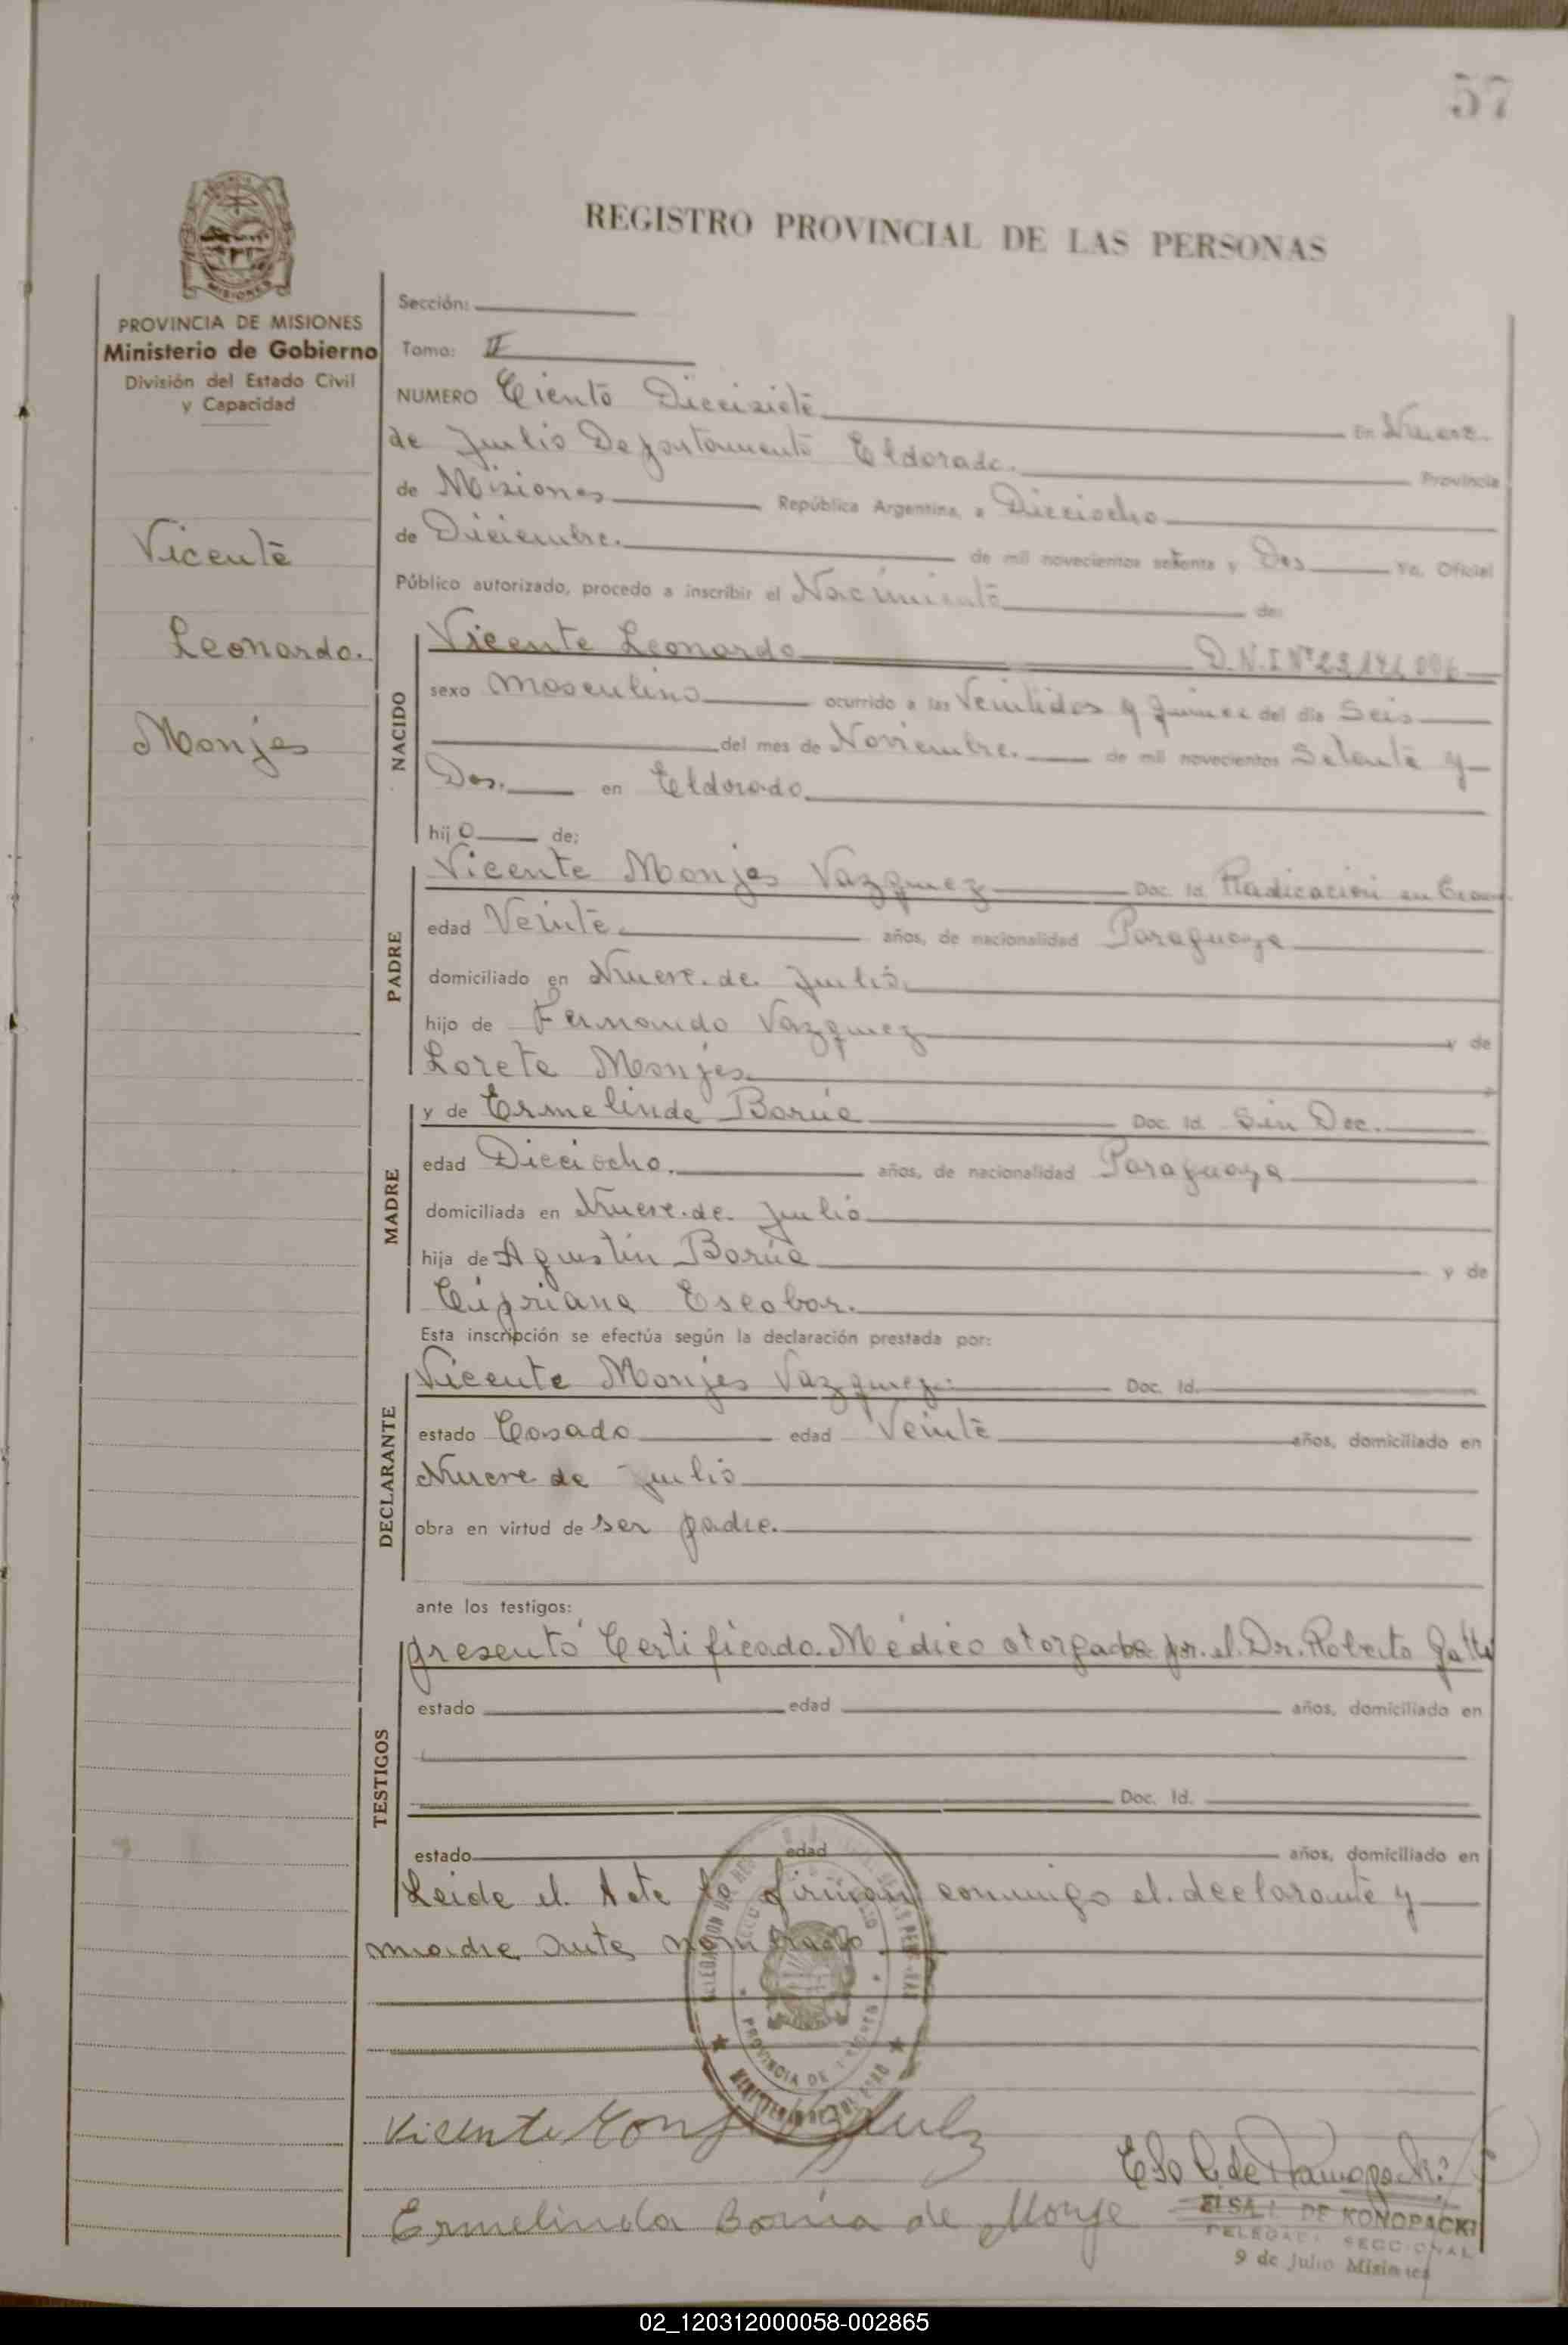 57
REGISTRO PROVINCIAL DE LAS PERSONAS
MISIONES
PROVINCIA DE MISIONES
Ministerio de Gobierno
División del Estado Civil
y Capacidad
Vicente
Leonardo.
Monjes
Sección:
Tomo: II
NUMERO Ciento Diecisiete En Nueve
de Julio Departamento Eldorado. Provincia
de Misiones República Argentina, a Dieciocho
de Diciembre. de mil novecientos setenta y Dos Yo, Oficial
Público autorizado, procedo a inscribir el Nacimiento de:
NACIDO
Vicente Leonardo D.N.I Nº
sexo masculino ocurrido a las Veintidos y quince del día Seis
del mes de Noviembre. de mil novecientos Setenta y
Dos. en Eldorado
hijo de:
PADRE
Vicente Monjes Vazquez Doc. Id. Radicación en
edad Veinte. años, de nacionalidad Paraguaya
domiciliado en Nueve. de. Julio.
hijo de Fernando Vazquez y de
Loreta Monjes
MADRE
y de Ermelinda Barúa Doc. Id. Sin Doc.
edad Dieciocho. años, de nacionalidad Paraguaya
domiciliada en Nueve. de. Julio
hija de Agustín Barúa y de
Cipriana Escobar.
Esta inscripción se efectúa según la declaración prestada por:
DECLARANTE
Vicente Monjes Vazquez. Doc. Id.
estado Casado edad Veinte años, domiciliado en
Nueve de Julio
obra en virtud de ser padre.
ante los testigos:
TESTIGOS
presentó Certificado. Médico otorgado por. el. Dr. Roberto
estado edad años, domiciliado en
Doc. Id.
estado edad años, domiciliado en
Leida el. Acta la firman conmigo el. declarante y
madre ante nombrado
PROVINCIA DE
Vicente
Ermelinda Barúa de Monje
ELSA DE KONOPACKI
SECCIONAL
9 de Julio Misiones
02_120312000058-002865